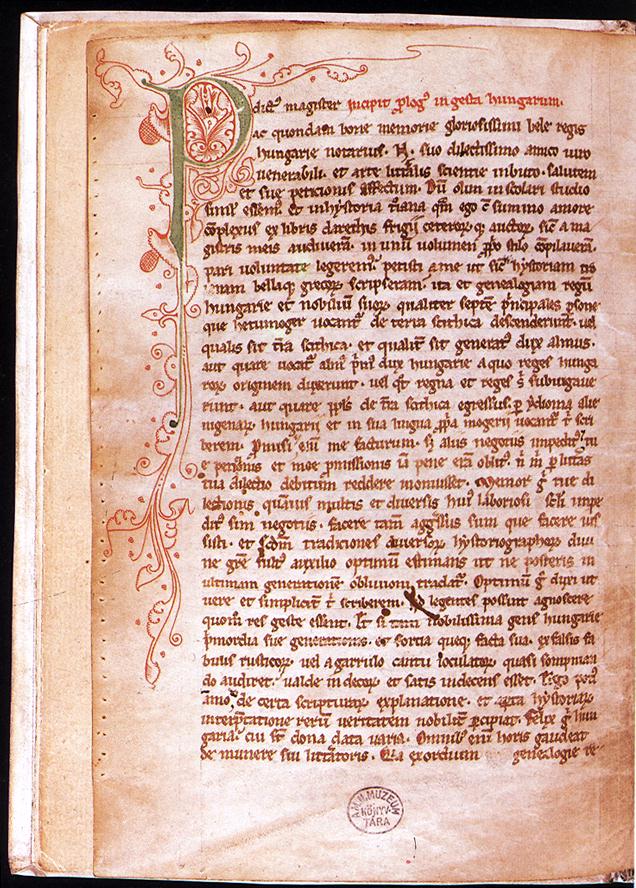 P dictus magister Incipit prologus in gesta hungarum.
ac quondam bone memorie gloriosissimi bele regis
hungarie notarius. N. suo dilectissimo amico uiro
uenerabili. et arte litteralis scientie inbuto. salutem
et sue peticionis affectum. Dum olim in scolari studio
simul essemus. et in hystoria troiana quam ego cum summo amore
complexus ex libris darethis frigii ceterorumque auctorum sicut a ma
gistris meis audiueram. in unum uolumen proprio stilo compilaueram.
pari uoluntate legeremus. petisti a me ut sicut hystoriam tro
ianam bellaque grecorum scripseram. ita et genealogiam regum
hungarie et nobilium suorum. qualiter septem principales persone
que hetumoger uocantur de terra scithica descenderunt. uel
qualis sit terra scithica. et qualiter sit generatus dux almus.
aut quare uocatur almus primus dux hungarie a quo reges hunga
rorum originem duxerunt. uel quot regna et reges sibi subiugaue
runt. aut quare populus de terra scithica egressus. per ydioma alie
nigenarum hungarii et in sua lingua propria mogerii uocantur tibi scri
berem. Promisi enim me facturum. sed aliis negotiis impeditus. et tu
e peticionis et mee promissionis iam pene eram oblitus. nisi mihi per litteras
tua dilectio debitum reddere monuisset. Memor igitur tue di
lectionis. quamuis multis et diuersis huius laboriosi seculi impe
ditus sim negotiis. facere tamen aggressus sum que facere ius
sisti. et secundum traditiones diuersorum hystoriographorum diui
ne gratie fultus auxilio optimum estimans ut ne posteris in
ultimam generationem obliuioni tradatur. Optimum ergo duxi ut
uere et simpliciter tibi scriberem. quod legentes possint agnoscere
quomodo res geste essent. Et si tam nobilissima gens hungarie
primordia sue generationis. et fortia queque facta sua. ex falsis fa
bulis rusticorum uel a garrulo cantu ioculatorum quasi sompnian
do audiret. ualde indecorum et satis indecens esset. Ergo potius
amodo de certa scripturarum explanatione. et aperta hystoriarum
interpretatione rerum ueritatem nobiliter percipiat. Felix igitur hun
garia. cui sunt dona data uaria. Omnibus enim horis gaudeat
de munere sui litteratoris. Quia exordium genealogie re
A.M.N. MUZEUM
KÖNYV-
TÁRA